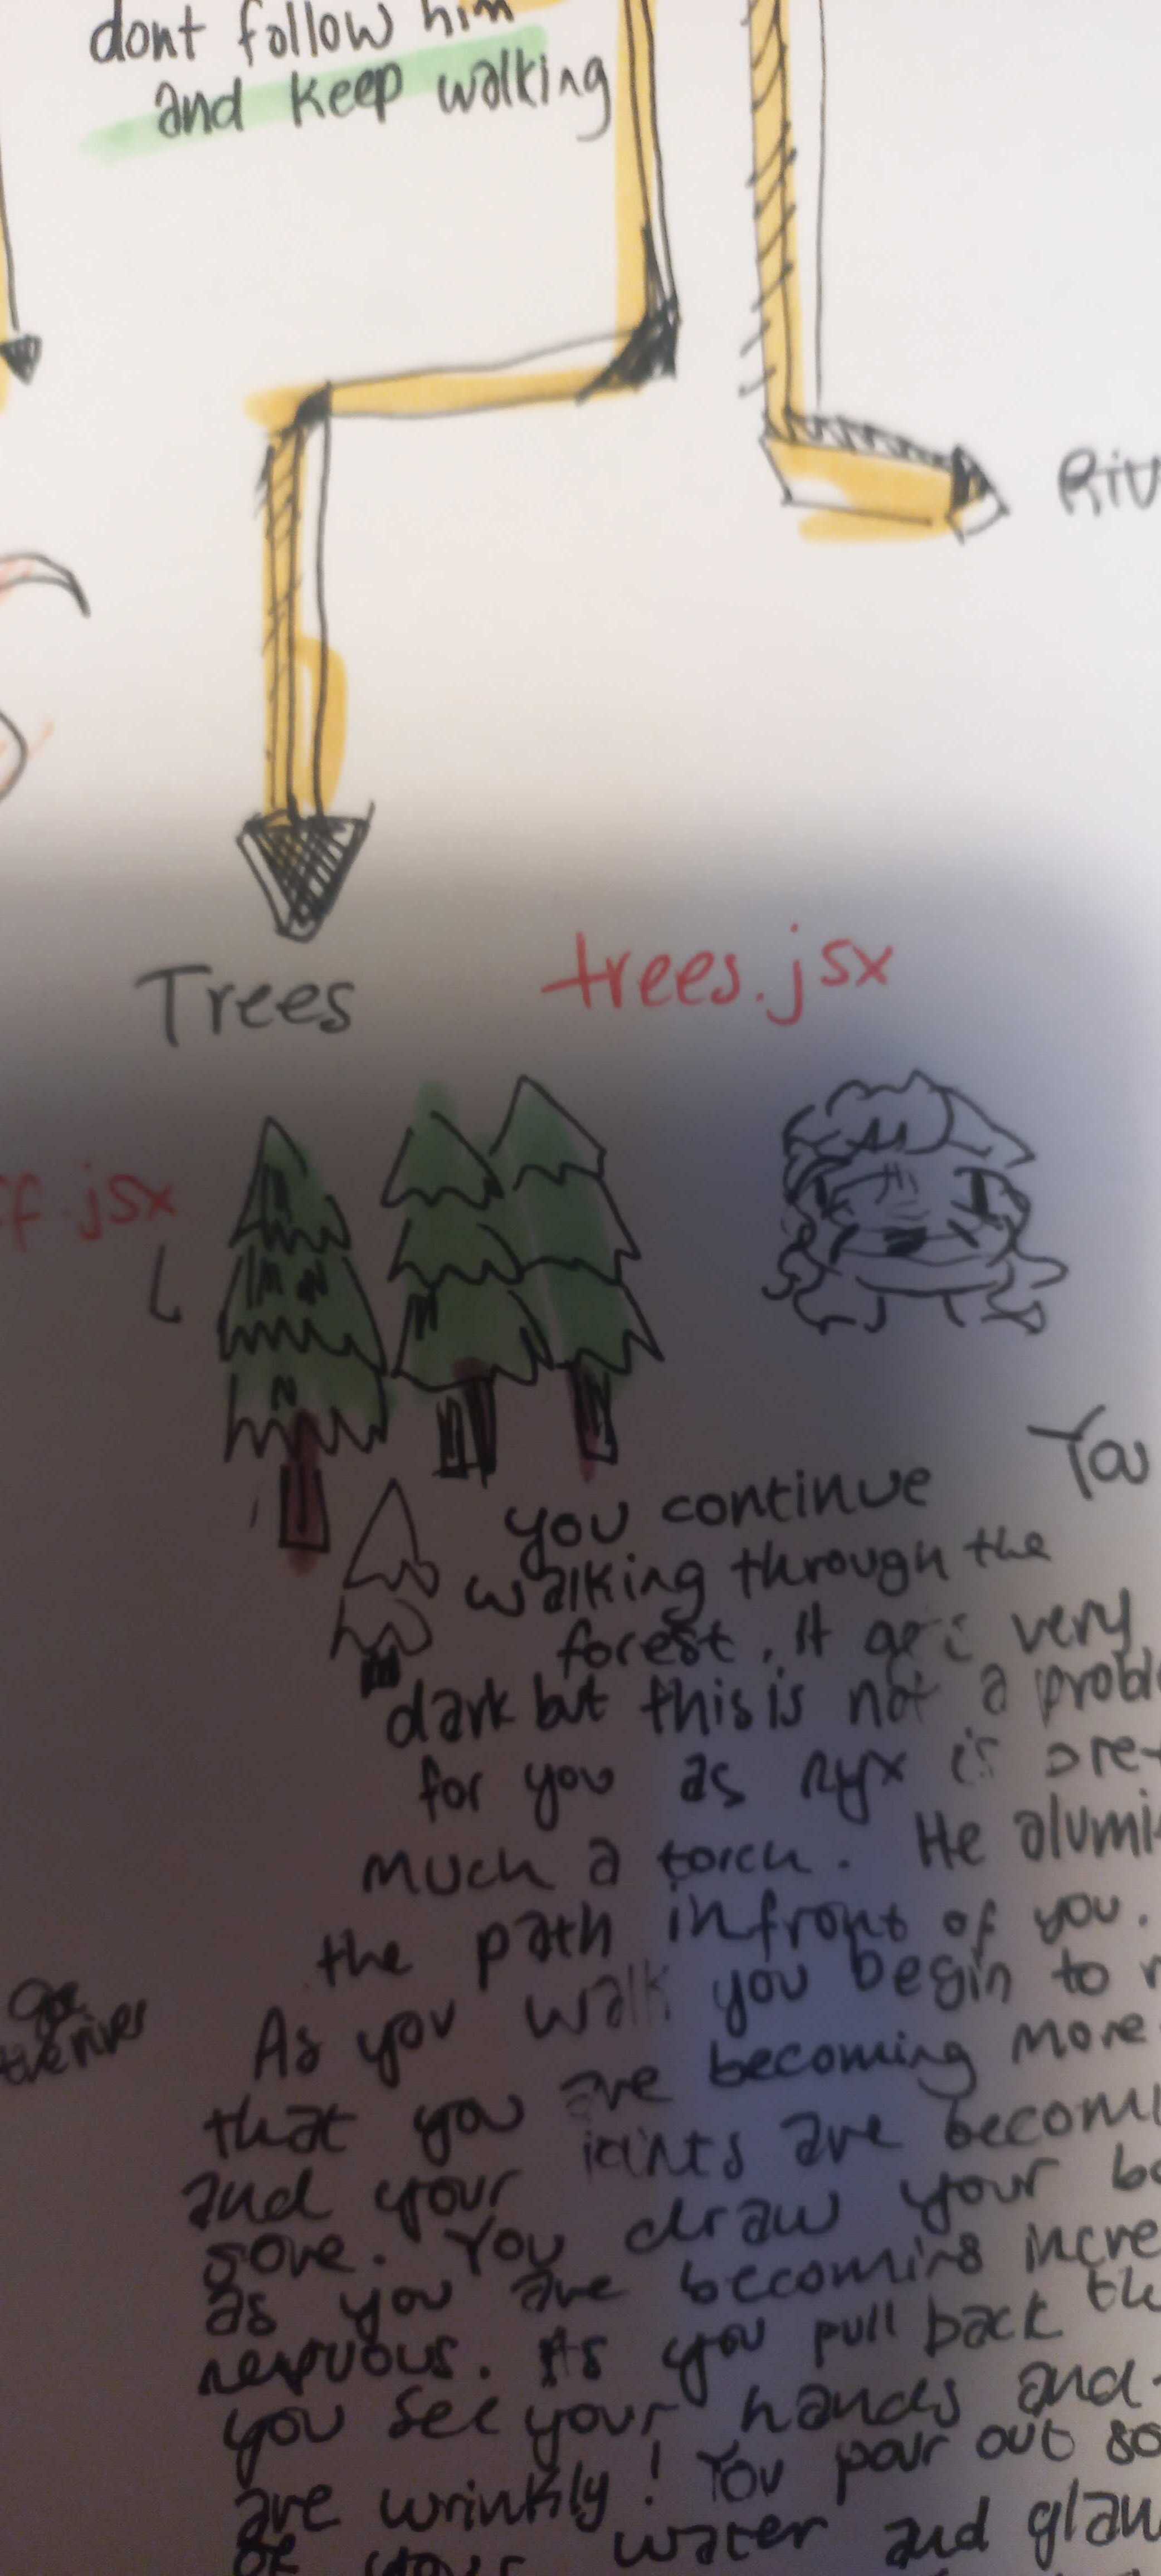 dont follow him
and keep walking
Riv
Trees
trees.jsx
ff.jsx
You
you continue
walking through the
forest. It gets very
dark but this is not a probl
for you as nyx is pret
much a torch. He alumi
the path infront of you.
the river
As you walk you begin to n
that you are becoming more
and your joints are becomi
sore. You draw your bo
as you are becoming incre
nervous. As you pull back the
you see your hands and
are wrinkly! You pour out so
of your water and glan